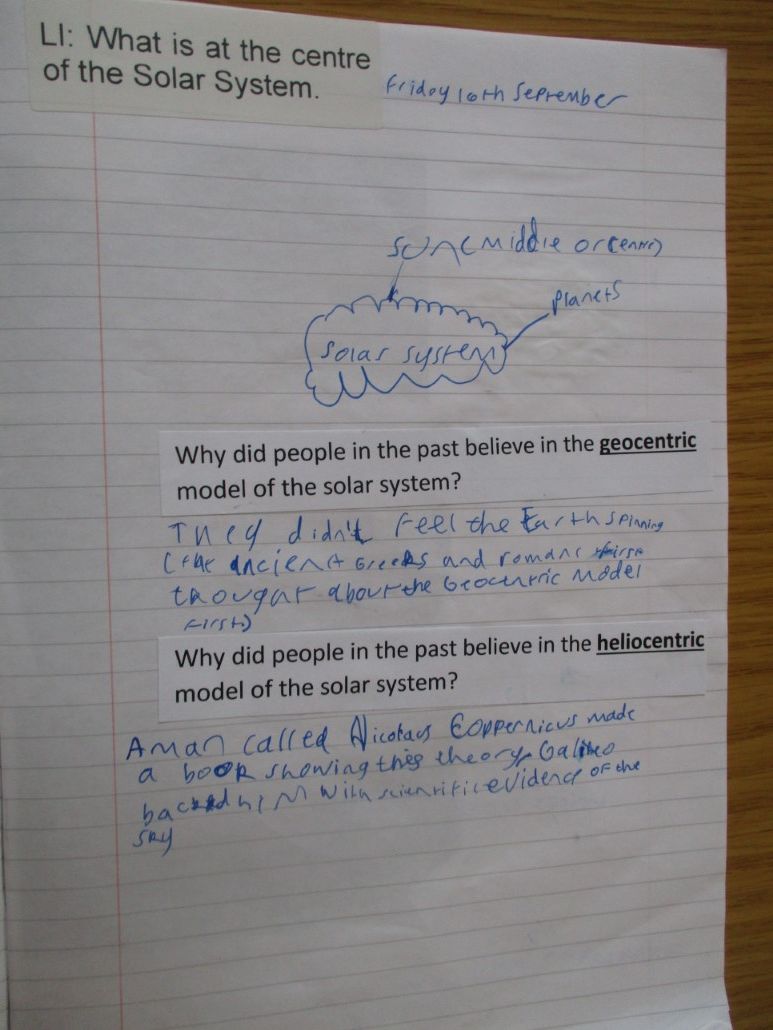 LI: What is at the centre
of the Solar System.
Friday 10th September
sun (Middle or centre)
Planets
Solar system
Why did people in the past believe in the geocentric
model of the solar system?
They didn't feel the Earth spinning
(the ancient Greeks and romans first
thought about the Geocentric Model
first)
Why did people in the past believe in the heliocentric
model of the solar system?
A man called Nicolaus Coppernicus made
a book showing this theory. Galileo
backed him with scientific evidence of the
sky